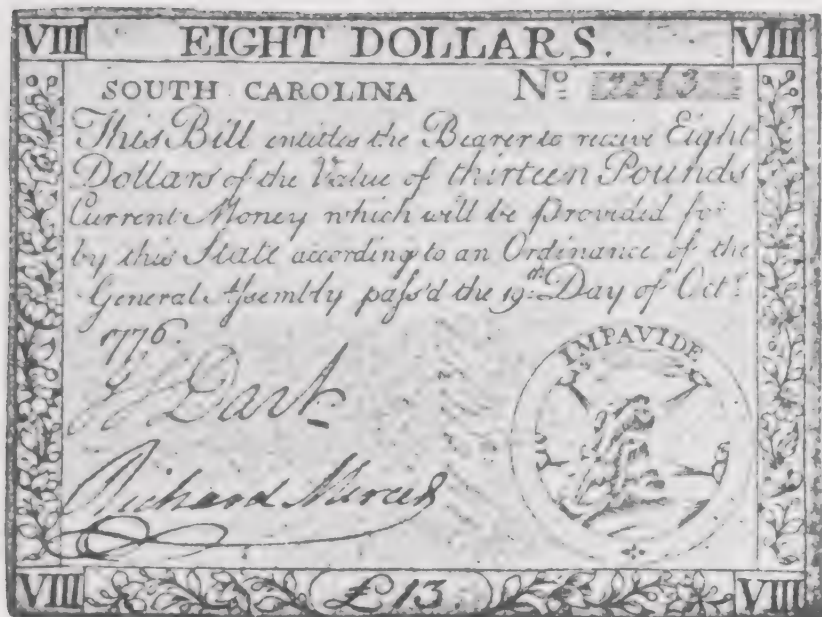 VIII EIGHT DOLLARS. VIII
SOUTH CAROLINA Nº
This Bill entitles the Bearer to receive Eight
Dollars of the Value of thirteen Pounds
Current Money which will be provided for
by this State according to an Ordinance of the
General Assembly pass'd the 19th Day of Octr.
1776.
Dart
Richard Mercer
IMPAVIDE
VIII £13. VIII